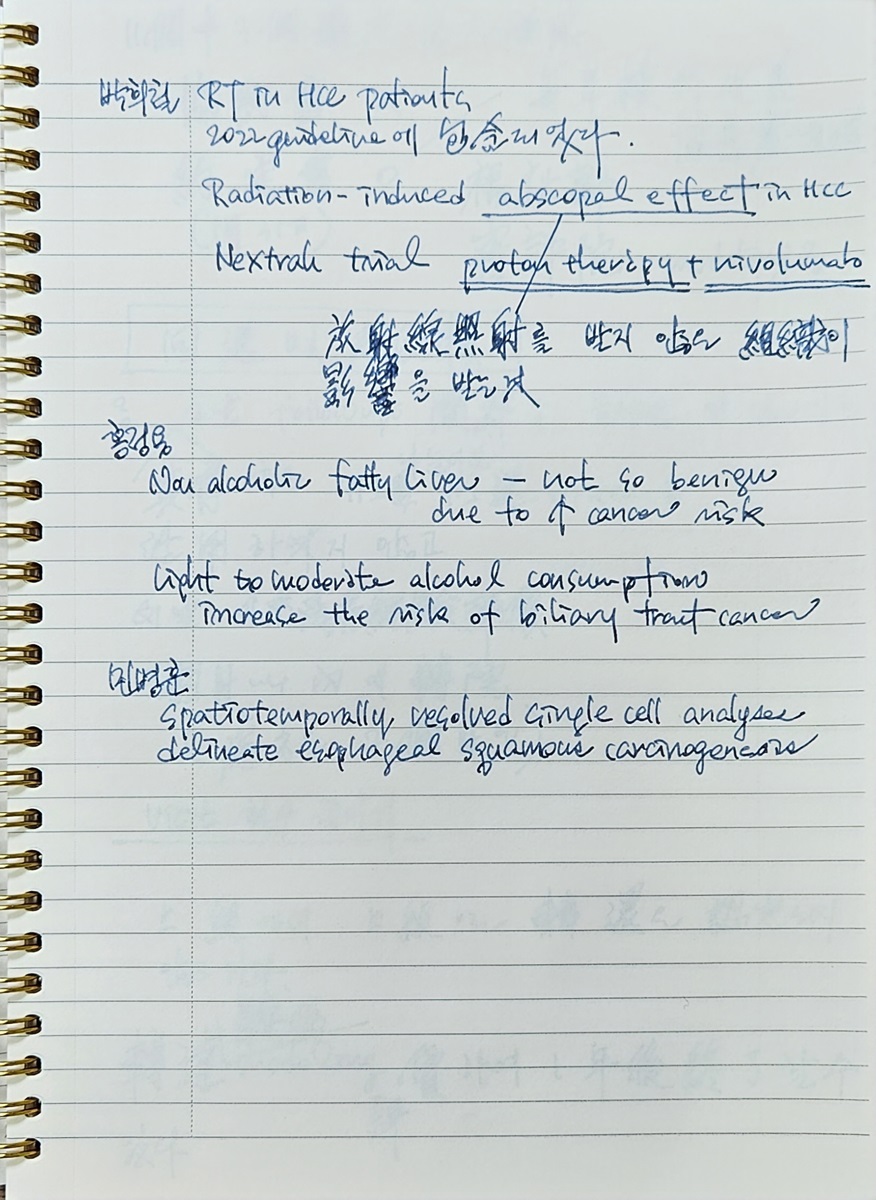 박희철 RT in HCC patients
2022 guideline에 包含되었다.
Radiation-induced abscopal effect in HCC
Nextrah trial proton therapy + nivolumab
放射線照射를 받지 않은 組織이
影響을 받는 것
홍정용
Non alcoholic fatty liver - not so benign
due to ↑ cancer risk
Light to moderate alcohol consumption
increase the risk of biliary tract cancer
민병훈
spatiotemporally resolved single cell analyses
delineate esophageal squamous carcinogenesis